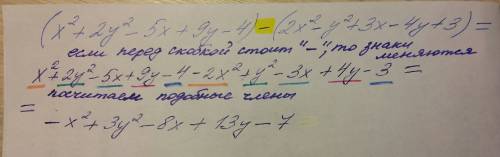 (x²+2y²-5x+9y-4)-(2x²-y²+3x-4y+3)=
если перед скобкой стоит "-", то знаки меняются
x²+2y²-5x+9y-4-2x²+y²-3x+4y-3=
= посчитаем подобные члены
-x²+3y²-8x+13y-7